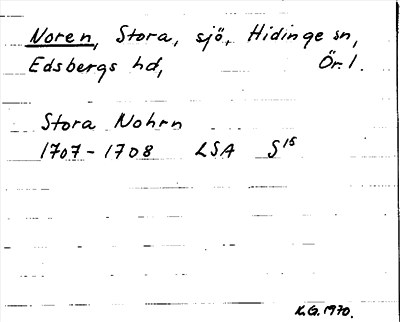 Noren, Stora, sjö, Hidinge sn,
Edsbergs hd, Ör. l.
Stora Nohrn
1707-1708 LSA S15
K.G. 1970.